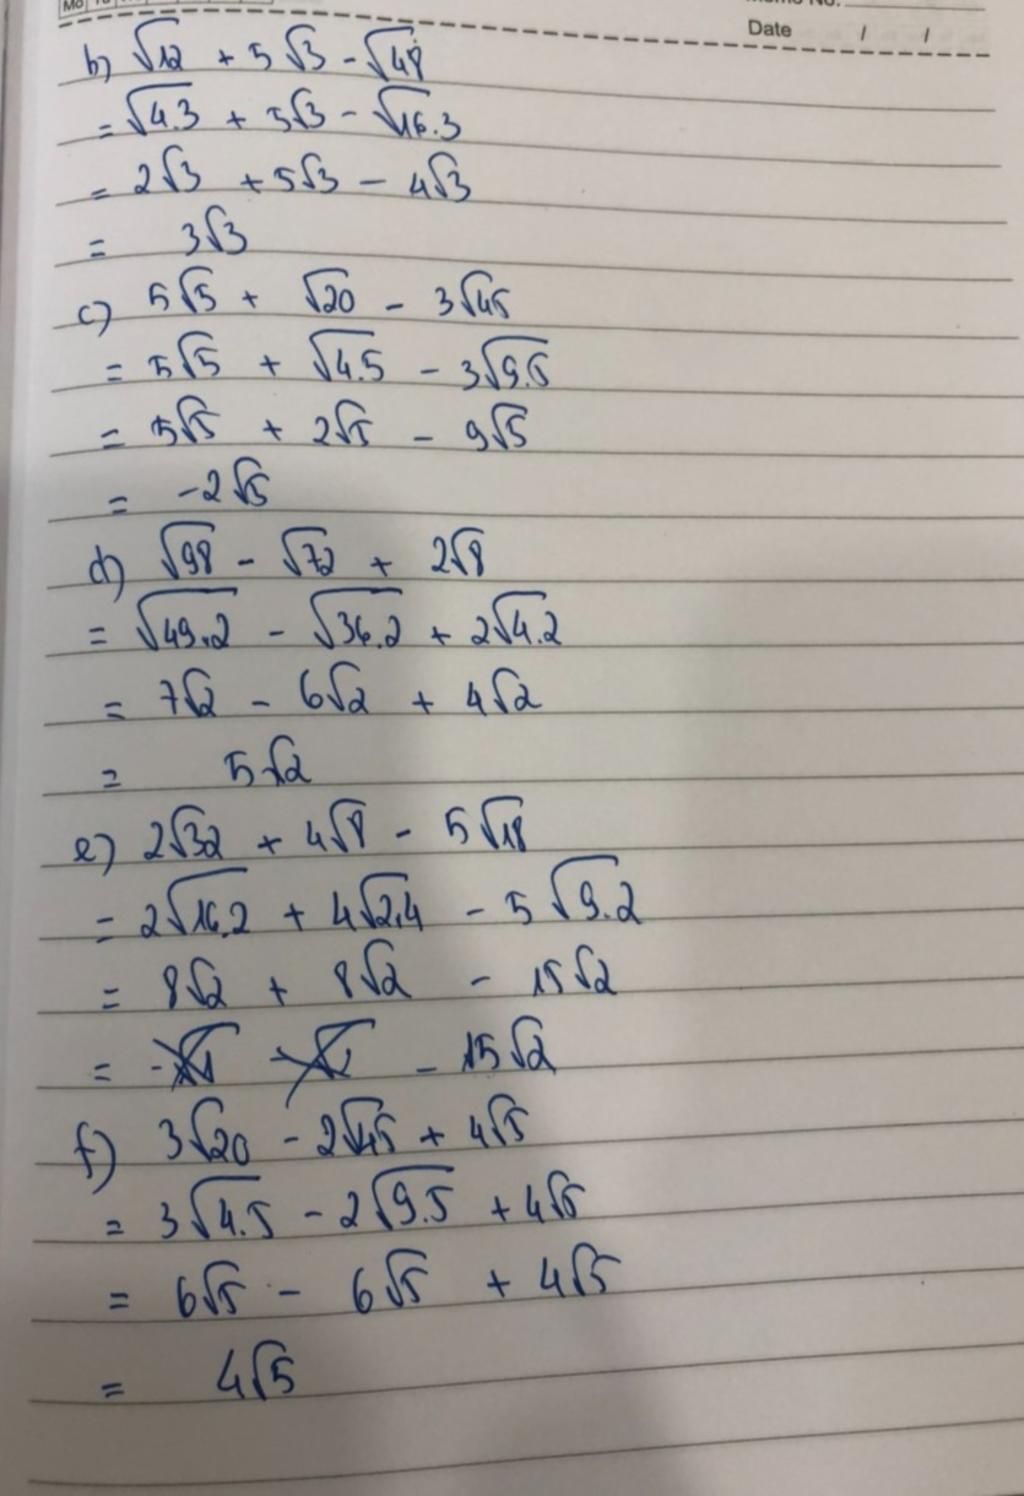 Date / /
b) √12 + 5√3 - √48
= √4.3 + 5√3 - √16.3
= 2√3 + 5√3 - 4√3
= 3√3
c) 5√5 + √20 - 3√45
= 5√5 + √4.5 - 3√9.5
= 5√5 + 2√5 - 9√5
= -2√5
d) √98 - √72 + 2√8
= √49.2 - √36.2 + 2√4.2
= 7√2 - 6√2 + 4√2
= 5√2
e) 2√32 + 4√8 - 5√18
= 2√16.2 + 4√2.4 - 5√9.2
= 8√2 + 8√2 - 15√2
= - 15√2
f) 3√20 - 2√45 + 4√5
= 3√4.5 - 2√9.5 + 4√5
= 6√5 - 6√5 + 4√5
= 4√5